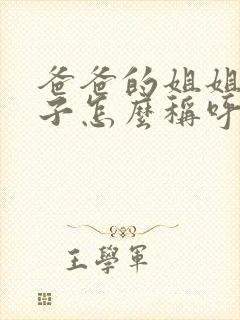 爸爸的姐姐
子怎麼稱呼
王學軍